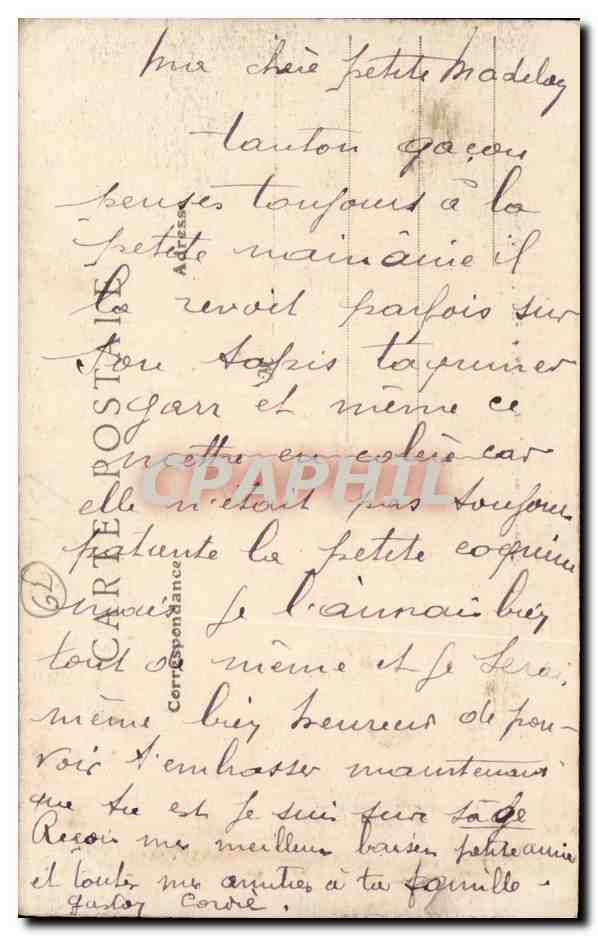 Ma chère petite Madelon
tonton gaçon
penses toujours à la
petite mainâme il
la revoit parfois sur
son tapis taquiner
garr et même ce
mettre en colère car
elle n'était pas toujours
patiente la petite coquine
mais je l'aimais bien
tout de même et je serai
même bien heureux de pou-
voir t'embrasser maintenant
que tu est je suis sure sage
Reçois mes meilleurs baisers petite amie
et toutes mes amitiés à ta famille.
Gaston
CARTE POSTALE
Correspondance
Adresse
CPAPHIL